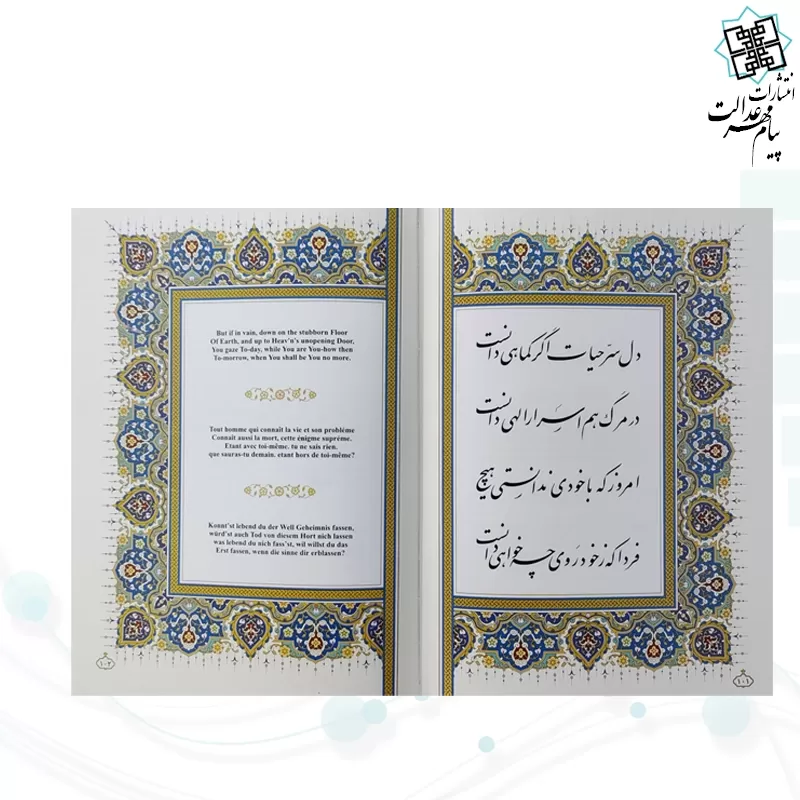 انتشارات
پیام مهر عدالت
دل سرّ حیات اگر کماهی دانست
در مرگ هم اسرار الهی دانست
امروز که با خودی ندانستی هیچ
فردا که ز خود روی چه خواهی دانست
۱۰۱
But if in vain, down on the stubborn Floor
Of Earth, and up to Heav'n's unopening Door,
You gaze To-day, while You are You-how then
To-morrow, when You shall be You no more.
Tout homme qui connaît la vie et son problème
Connaît aussi la mort, cette énigme suprême.
Etant avec toi-même. tu ne sais rien,
que sauras-tu demain. etant hors de toi-même?
Konnt'st lebend du der Well Geheimnis fassen,
würd'st auch Tod von diesem Hort nich lassen
was lebend du nich fass'st, wil willst du das
Erst fassen, wenn die sinne dir erblassen?
۱۰۲